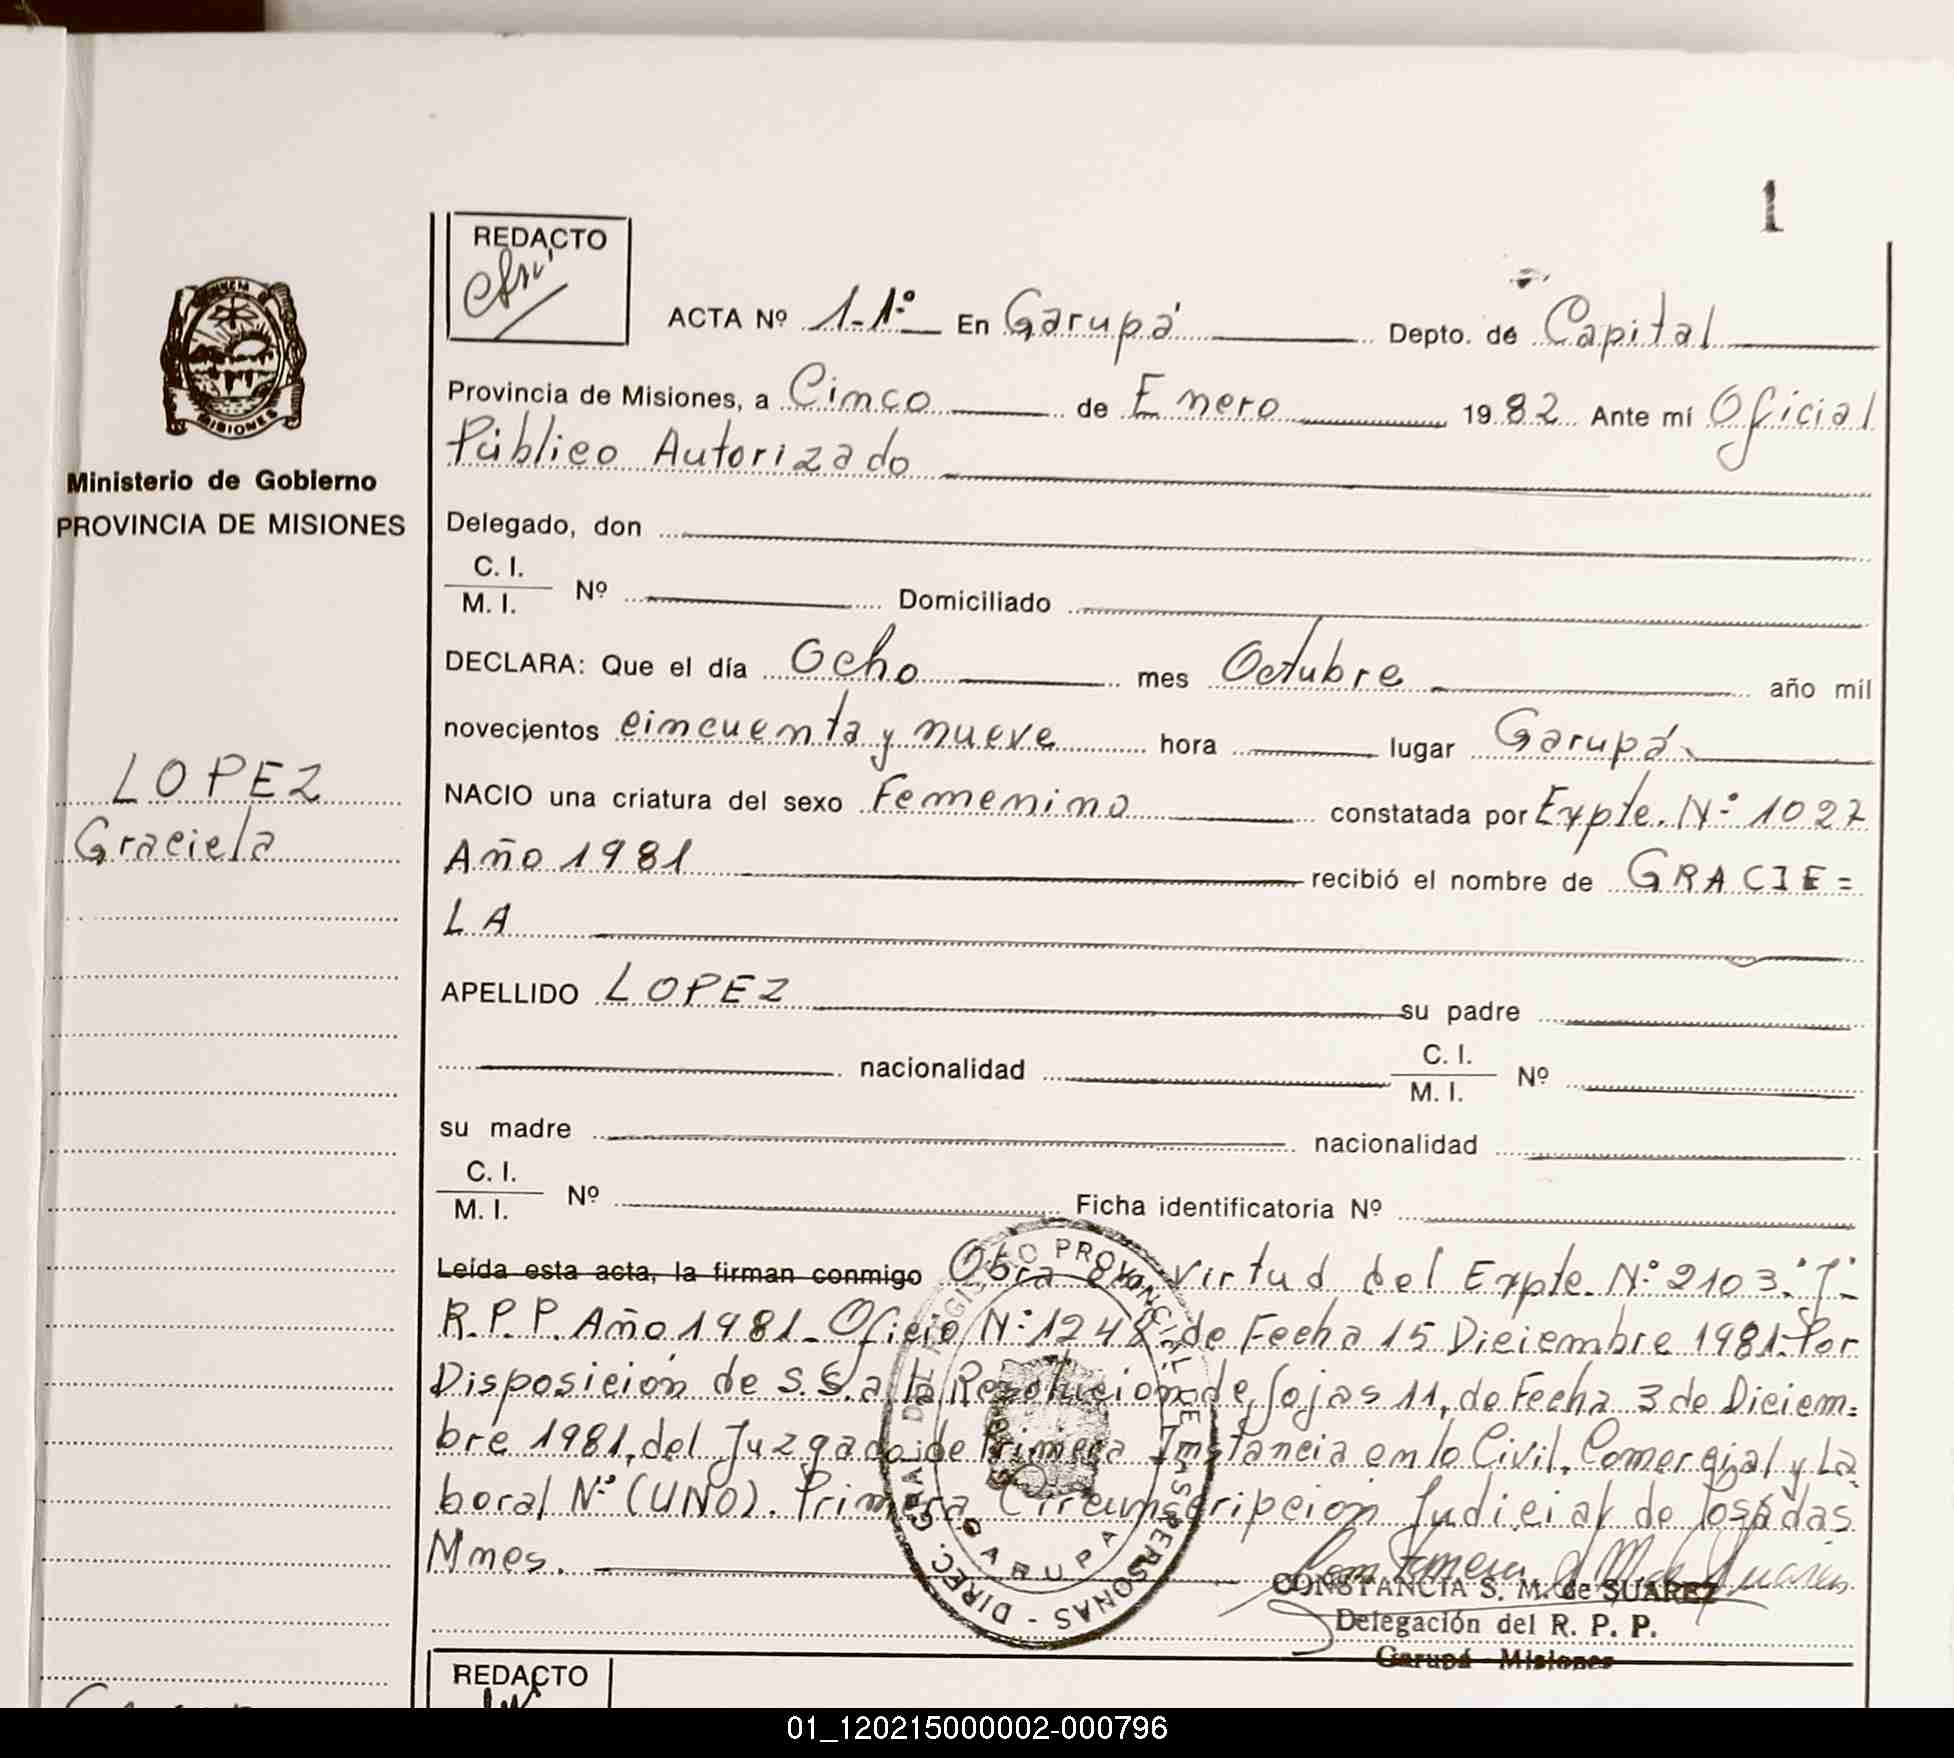 1
REDACTO
ACTA Nº 1-1º En Garupá Depto. de Capital
Provincia de Misiones, a Cinco de Enero 1982 Ante mí Oficial
Público Autorizado
Delegado, don
C. I.
M. I.
Nº Domiciliado
DECLARA: Que el día Ocho mes Octubre año mil
novecientos cincuenta y nueve hora lugar Garupá
NACIO una criatura del sexo Femenino constatada por Expte. Nº 1027
Año 1981 recibió el nombre de GRACIE=
LA
APELLIDO LOPEZ su padre
nacionalidad C. I.
M. I. Nº
su madre nacionalidad
C. I.
M. I.
Nº Ficha identificatoria Nº
Leída esta acta, la firman conmigo Obra en virtud del Expte. Nº 2103."J"
R.P.P. Año 1981-Oficio Nº 1248-de Fecha 15 Diciembre 1981-Por
Disposición de S.S. a la Resolución de fojas 11, de Fecha 3 de Diciem=
bre 1981, del Juzgado de Primera Instancia en lo Civil, Comercial y La
boral Nº (UNO). Primera Circunscripción Judicial de Posadas
Mnes.
CONSTANCIA S. M. de SUAREZ
Delegación del R. P. P.
Garupá - Misiones
DIREC. GRAL. DEL REGISTRO PROVINCIAL DE LAS PERSONAS -
GARUPA
MISIONES
Ministerio de Gobierno
PROVINCIA DE MISIONES
LOPEZ
Graciela
REDACTO
01_120215000002-000796